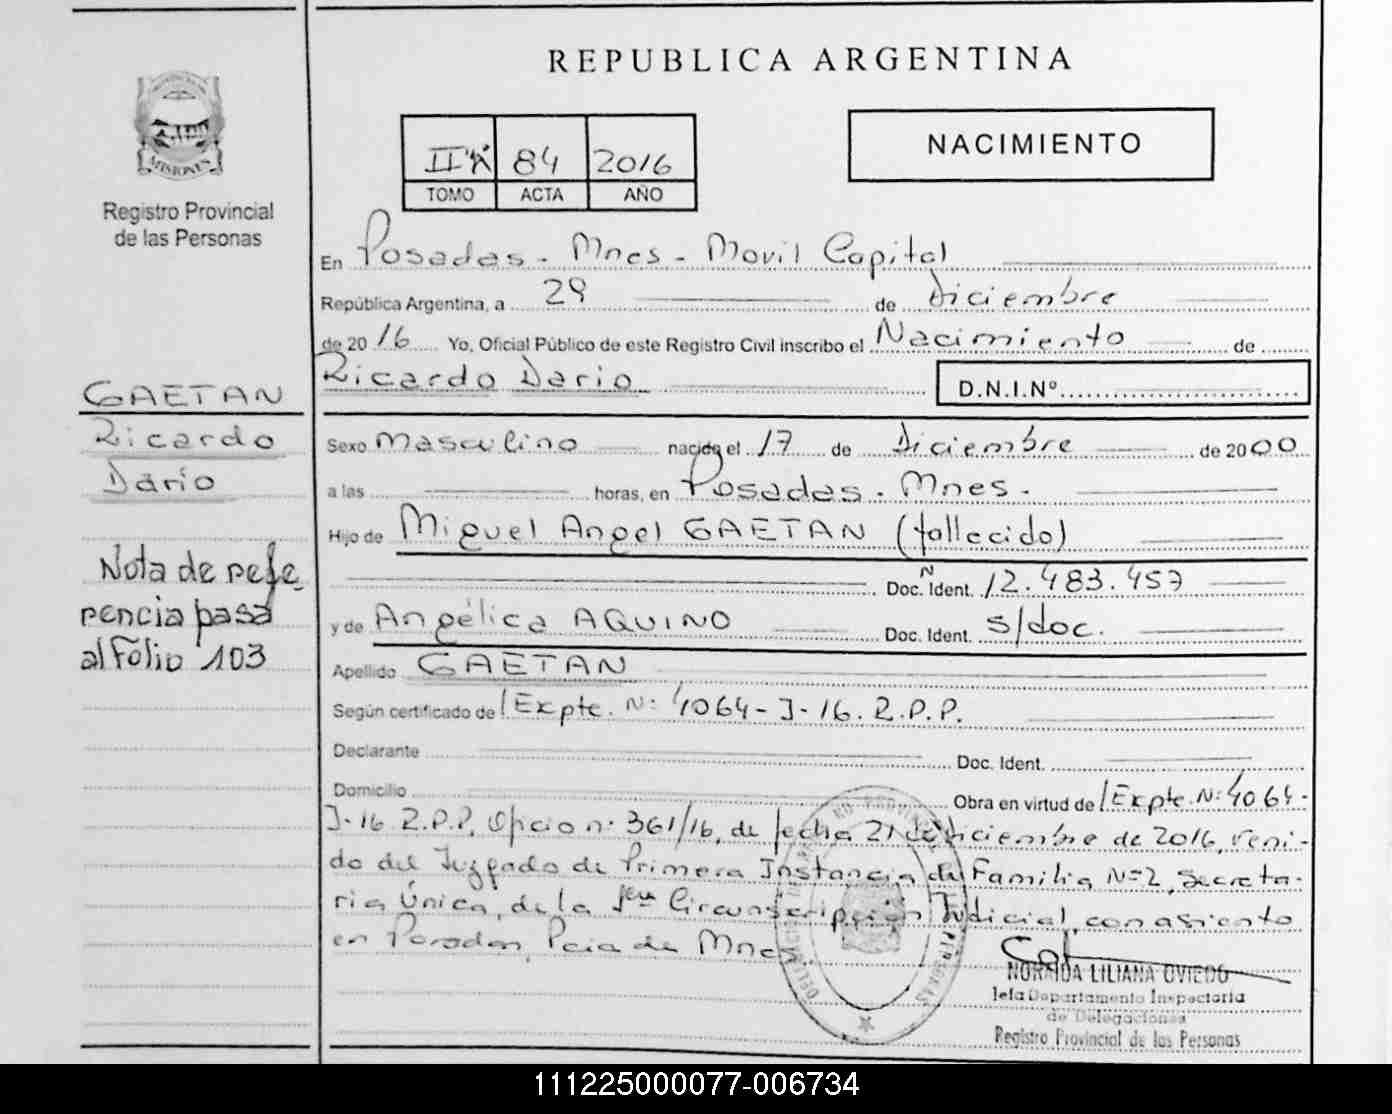 REPUBLICA ARGENTINA
MISIONES
Registro Provincial
de las Personas
II 84 2016
TOMO ACTA AÑO
NACIMIENTO
En Posadas - Mnes - Movil Capital
República Argentina, a 29 de Diciembre
de 2016 Yo, Oficial Público de este Registro Civil inscribo el Nacimiento de
Ricardo Dario D.N.I.Nº
GAETAN
Ricardo
Darío
Nota de refe
rencia pasa
al Folio 103
Sexo Masculino nacido el 17 de Diciembre de 2000
a las horas, en Posadas - Mnes -
Hijo de Miguel Angel GAETAN (fallecido)
Doc. Ident. Nº 12.483.457
y de Angélica AQUINO Doc. Ident. s/doc.
Apellido GAETAN
Según certificado de Expte. Nº: 4064-J-16. R.P.P.
Declarante Doc. Ident.
Domicilio Obra en virtud de Expte. Nº: 4064-
J-16 R.P.P. Oficio nº 361/16, de fecha 21 de Diciembre de 2016, veni-
do del Juzgado de Primera Instancia de Familia Nº2, Secreta-
ria Única, de la 1era Circunscripción Judicial, con asiento
en Posadas, Pcia de Mnes
NORMDA LILIANA OVIEDO
Jefa Departamento Inspectoria
de Delegaciones
Registro Provincial de las Personas
111225000077-006734